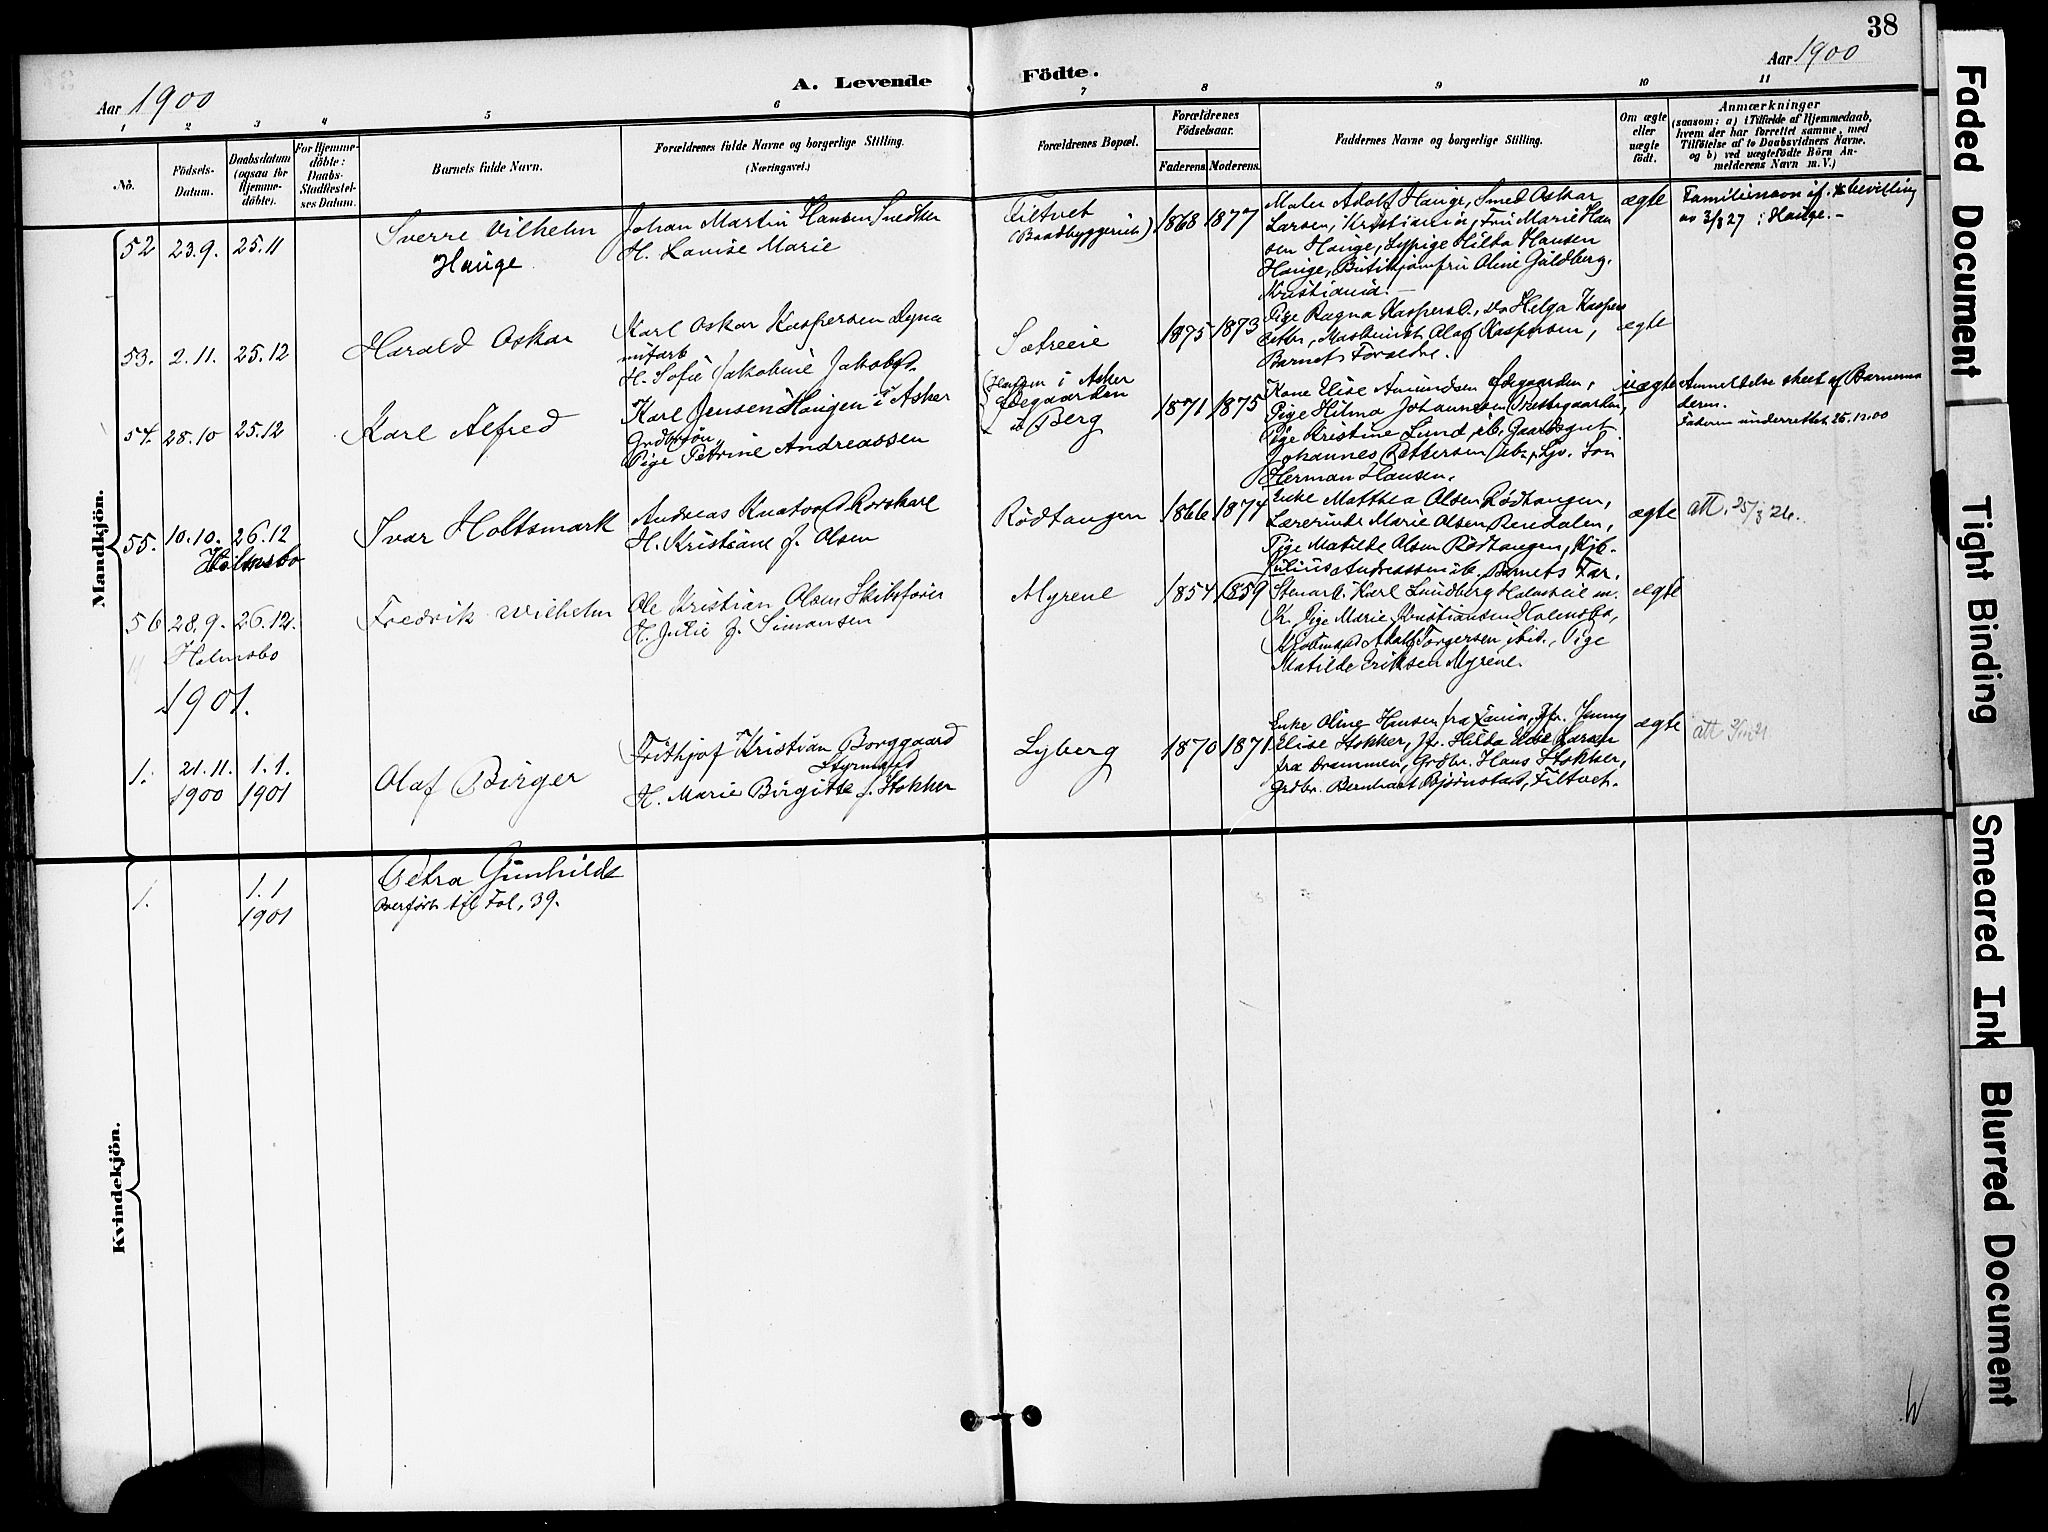 38
Aar 1900
A. Levende Födte.
Aar 1900
1 2 3 4 5 6 7 8 9 10 11
No.
Födsels-Datum.
Daabsdatum
(ogsaa for
Hjemme-
döbte).
For Hjemme-
döbte:
Daabs-
Stadfæstel-
ses Datum.
Barnets fulde Navn.
Forældrenes fulde Navne og borgerlige Stilling.
(Næringsvei.)
Forældrenes Bopæl.
Forældrenes
Födselsaar.
Faderens. Moderens.
Faddernes Navne og borgerlige Stilling.
Om ægte
eller
uægte
födt.
Anmærkninger
(saasom: a) i Tilfælde af Hjemmedaab,
hvem der har forrettet samme, med
Tilföielse af to Daabsvidners Navne,
og b) ved uægtefödte Börn An-
melderens Navn m. V.)
Mandkjön.
52 23.9. 25.11
Sverre Vilhelm
Hauge
Johan Martin Hansen Snedker
H. Lovise Marie
Filtvet
(Baadbyggerich)
1868 1877
Maler Adolf Hauge, Smed Oskar
Larsen, Kristiania, Fru Marie Han
sen Hauge, Sypige Hilda Hansen
Hauge, Butikjomfru Oline Guldberg,
Kristiania.
ægte
Familienavn if. bevilling
av 3/8 27: Hauge.-
53. 2.11. 25.12
Harald Oskar
Karl Oskar Kaspersen Dyna
mitarb
H. Sofie Jakobine Jakobsd.
Sætreeie
1875 1873
Pige Ragna Kaspersd., do Helga Kaspers
datter, Maskinist Olaf Kaspersen,
Barnets Forældre.
ægte
54. 28.10 25.12
Karl Alfred
Karl Jensen Haugen i Asker
Grdbrsön
Pige Petrine Andreassen
Haugen i Asker
Ødegaarden
u. Berg
1871 1875
Kone Elise Amundsen Ødegaarden,
Pige Hilma Johannesen Præstegaarden,
Pige Kristine Lund, ib., Gaardsgut
Johannes Pettersen ib., Ljv. Sön
Herman Hansen.
uægte
Anmeldelse skeet af Barnemo
deren.
Faderen underrettet 26.12.00
55. 10.10. 26.12
Holmsbo
Ivar Holtsmark
Andreas Knatvold Rorskarl
H. Kristiane f. Olsen
Rödtangen
1866 1874
Enke Matthea Olsen Rödtangen,
Lærerinde Marie Olsen Rendalen,
Pige Matilde Olsen Rödtangen, Kjb.
Julius Andreassen ib. Barnets Far.
ægte
att. 25/3 26.
56 28.9. 26.12.
Holmsbo
Fredrik Wilhelm
Ole Kristian Olsen Skibsförer
H. Julie f. Simonsen
Myrene
1854 1859
Stenarb. Karl Lundberg Holmseie m.
K. Pige Marie Kristiansen Holmsbo,
Adolf Torgersen ibid., Pige
Matilde Eriksen Myrene.
ægte
1901.
1. 21.11. 1.1.
1900 1901
Olaf Birger
Frithjof Kristian Borggaard
Styrmand
H. Marie Birgitte f. Stokker
Lyberg
1870 1871
Enke Oline Hansen fra Jfr. Jenny
Elise Stokker, jfr. Hilda Else Larsen
fra Drammen, Grdbr. Hans Stokker,
Grdbr. Bernhart Björnstad, Filtvet.
ægte
att
Kvindekjön.
1. 1.1
1901
Petra Gunhilde
Overfört til Fol. 39.
Faded Document
Tight Binding
Smeared Ink
Blurred Document